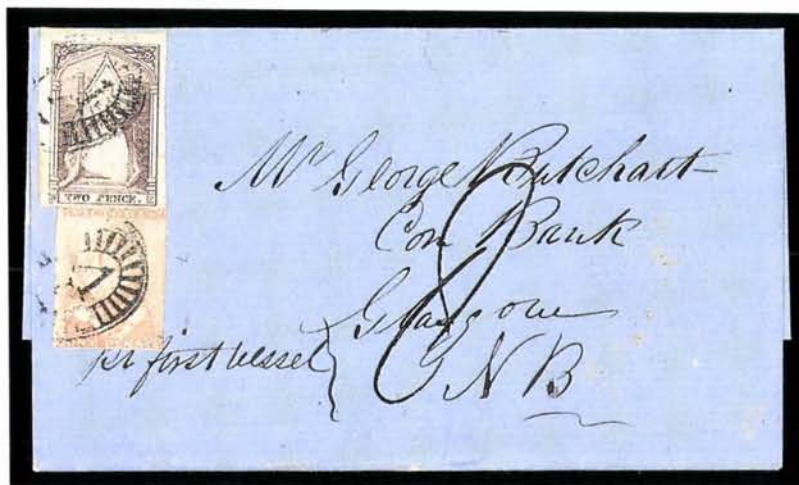 TWO PENCE.
1
Mr George Butchart
Com Bank
Glasgow
8
pr first vessel
N B